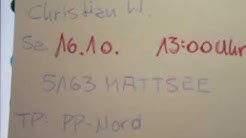 Christian W.
Sa. 16.10. 13:00 Uhr
5163 MATTSEE
TP: PP-Nord